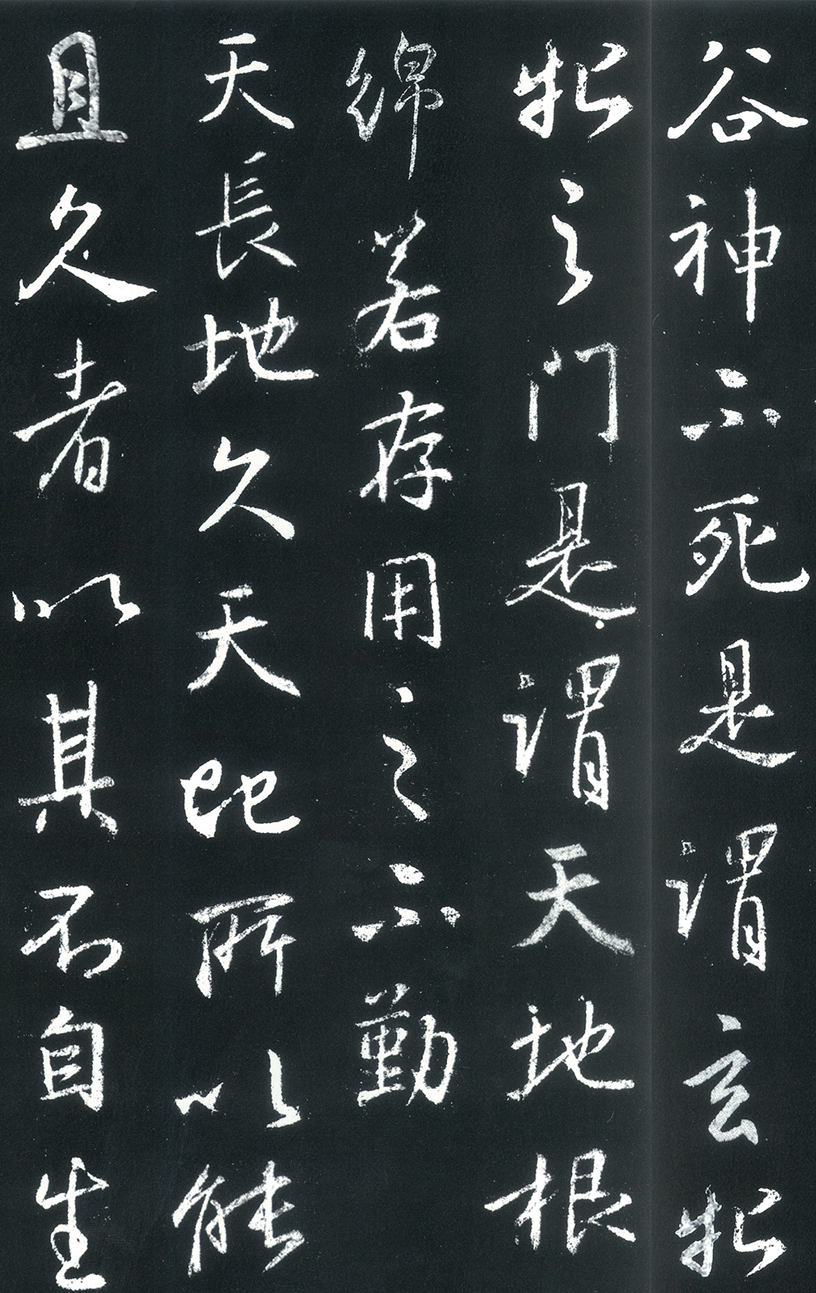 谷神不死是謂玄牝
牝之門是謂天地根
綿若存用之不勤
天長地久天地所以能
且久者以其不自生